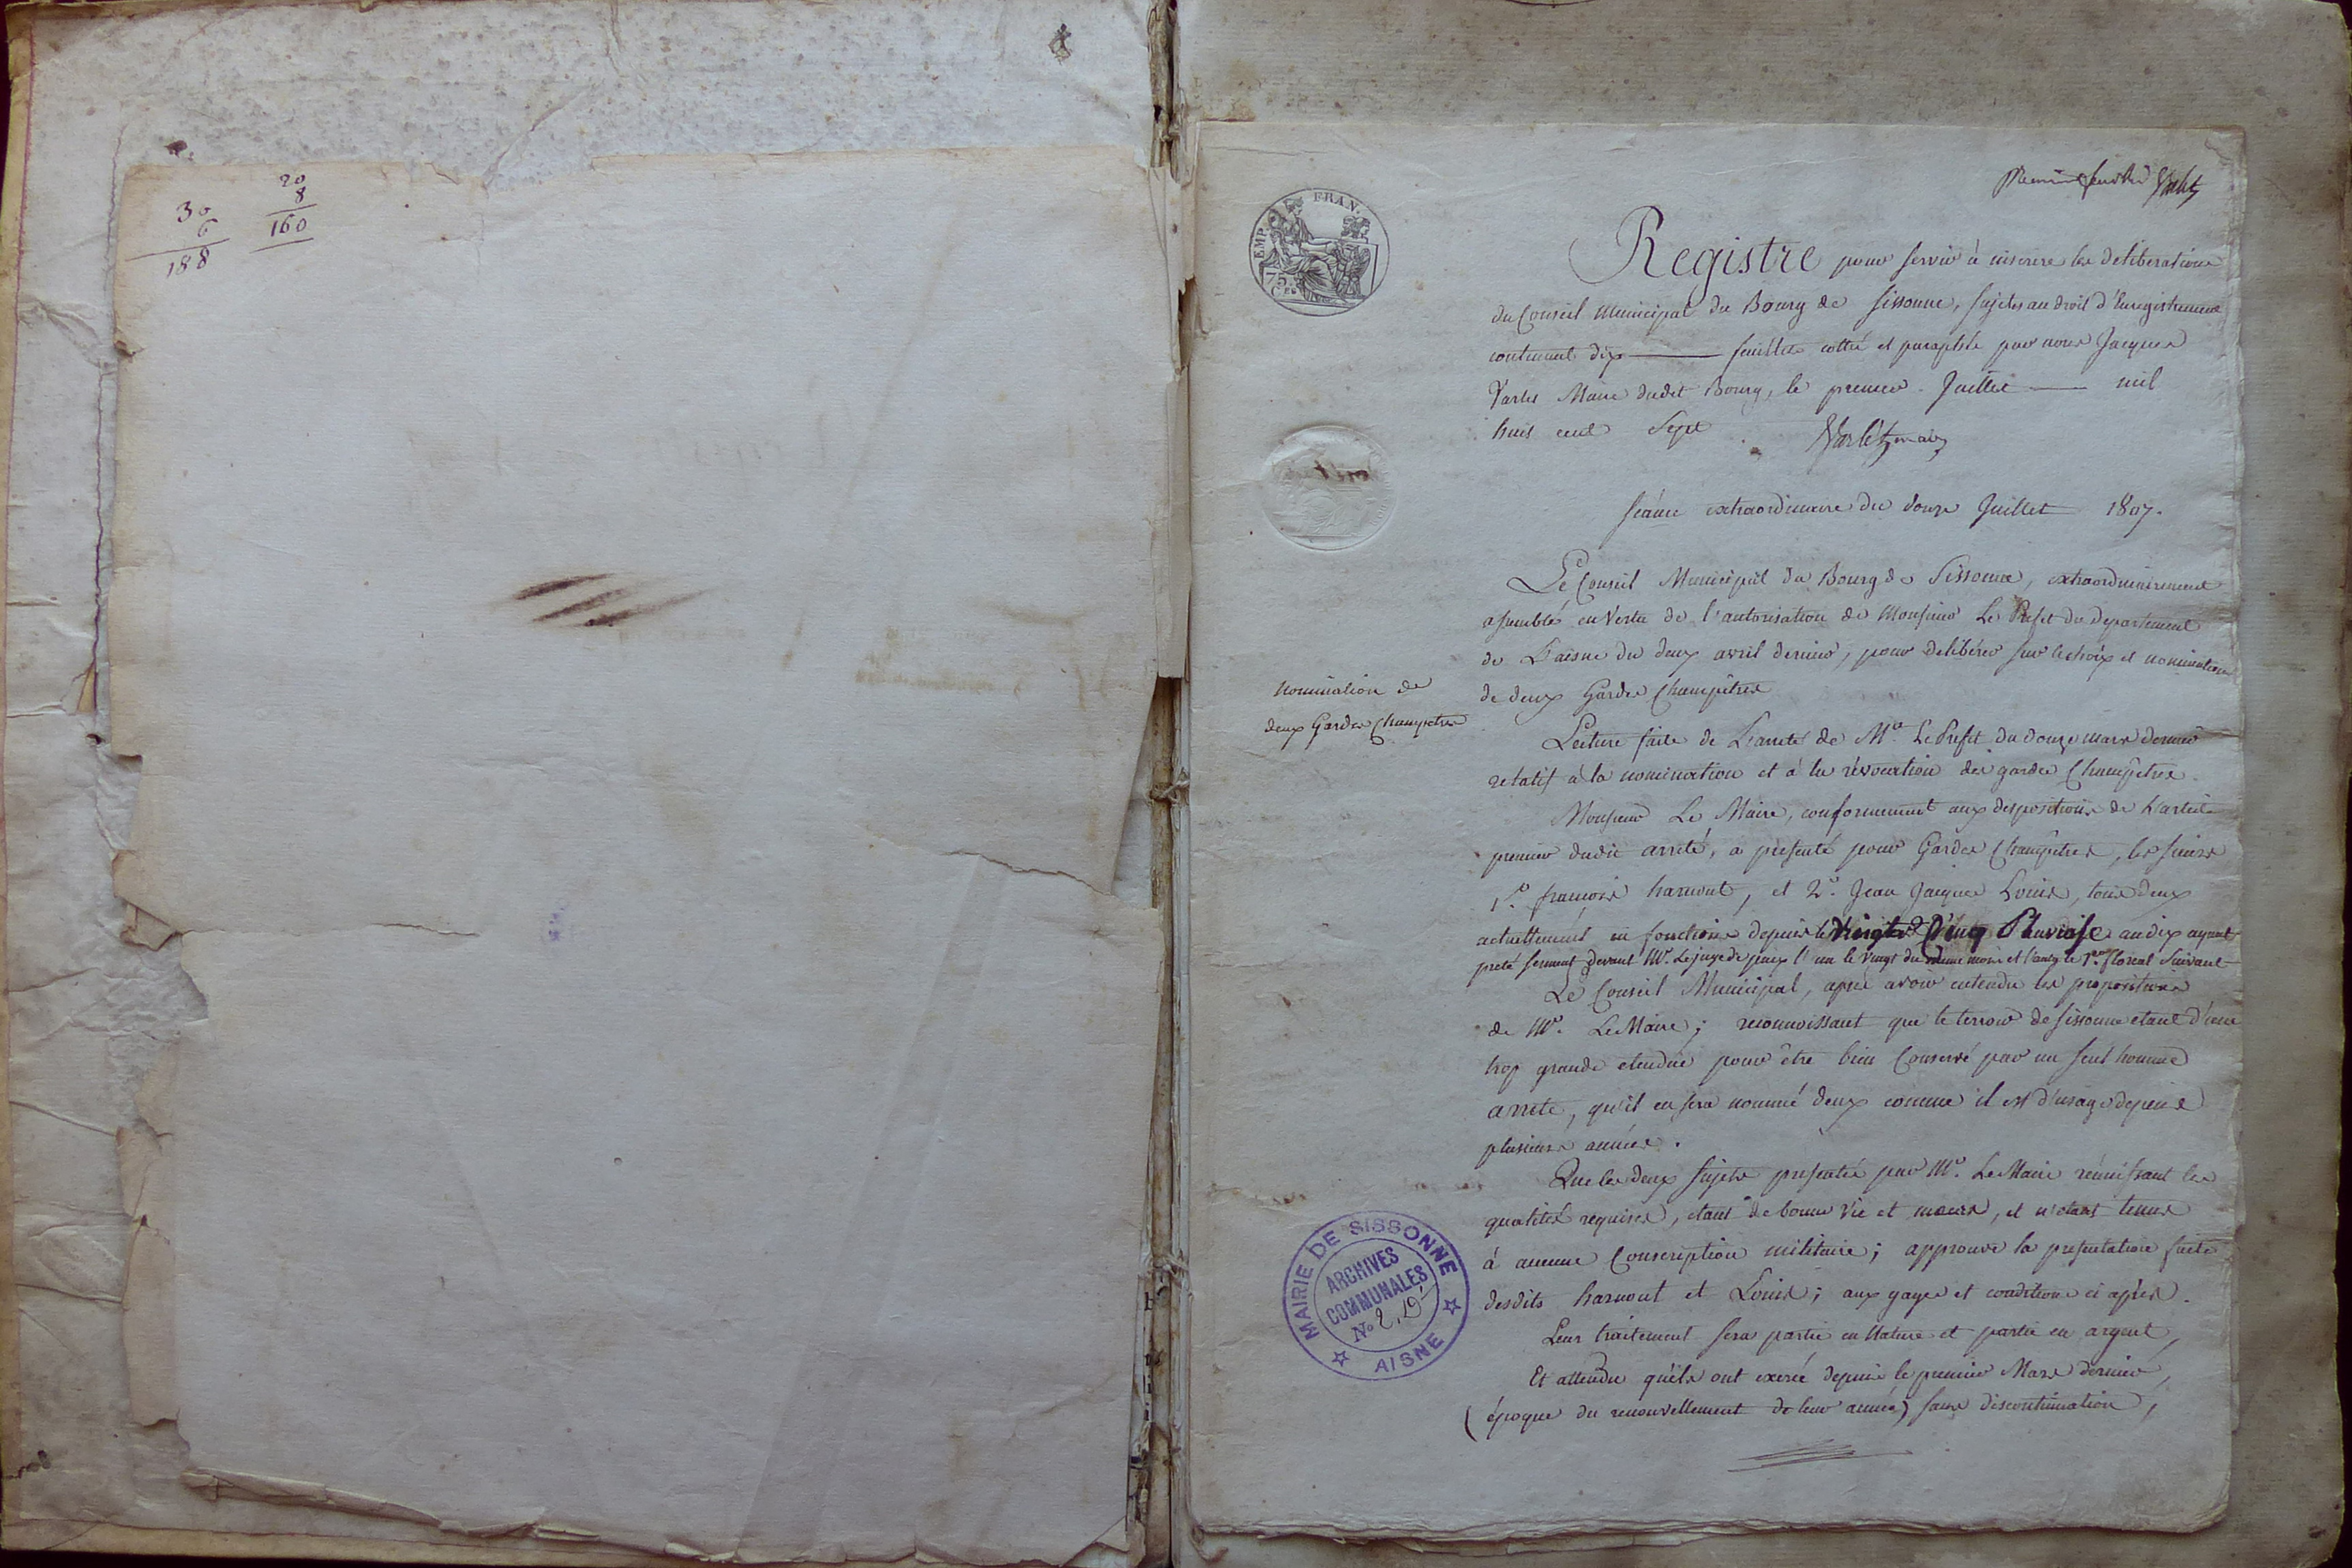 20
8
160
30
6
188
premier feuillet Varlet
EMP. FRAN.
75
CES
Registre pour servir à inscrire les deliberations
du Conseil Municipal du Bourg de Sissonne, sujetes au droit d'Enregistrement
contenant dix feuillets cotté et paraphé par nous Jacques
Varlet Maire dudit Bourg, le premier Juillet mil
huit cent Sept
Varlet maire
Séance extraordinaire du douze Juillet 1807.
Le Conseil Municipal du Bourg de Sissonne, extraordinairement
assemblé en Vertu de l'autorisation de Monsieur Le Prefet du departement
de L'aisne du deux avril dernier, pour deliberer sur le choix et nomination
de deux Gardes Champêtres
nomination de
deux Gardes Champetres
Lecture faite de L'arrêté de Mr. Le Prefet du douze mars dernier
relatif à la nomination et à la révocation des gardes Champêtres.
Monsieur Le Maire, conformement aux despositions de L'article
premier dudit arrêté, a presenté pour Gardes Champêtres, les sieurs
1o. françois harnout, et 2o. Jean Jacques Louis, tous deux
actuellement en fonctions depuis le Vingt Cinq Pluviose an dix ayant
preté serment devant Mr. Le juge de paix l'un le Vingt du même mois et l'autre le 1er floreal Suivant
Le Conseil Municipal, après avoir entendu les propositions
de Mr. Le Maire; reconnoissant que le terroir de Sissonne etant d'une
trop grande etendue pour être bien Conservé par un seul homme
arrete, qu'il en sera nommé deux comme il est d'usage depuis
plusieurs années.
Que les deux sujets presentés par Mr. Le Maire réunissant les
qualités requises, etant de bonne Vie et moeurs, et n'etant tenus
à aucune Conscription militaire; approuve la presentation faite
desdits harnout et Louis; aux gages et conditions ci après.
Leur traitement sera partie en Nature et partie en argent,
Et attendu qu'ils ont exercé depuis le premier Mars dernier,
(époque du renouvellement de leur année) sans discontinuation,
MAIRIE DE SISSONNE
ARCHIVES
COMMUNALES
No 2, D1
AISNE